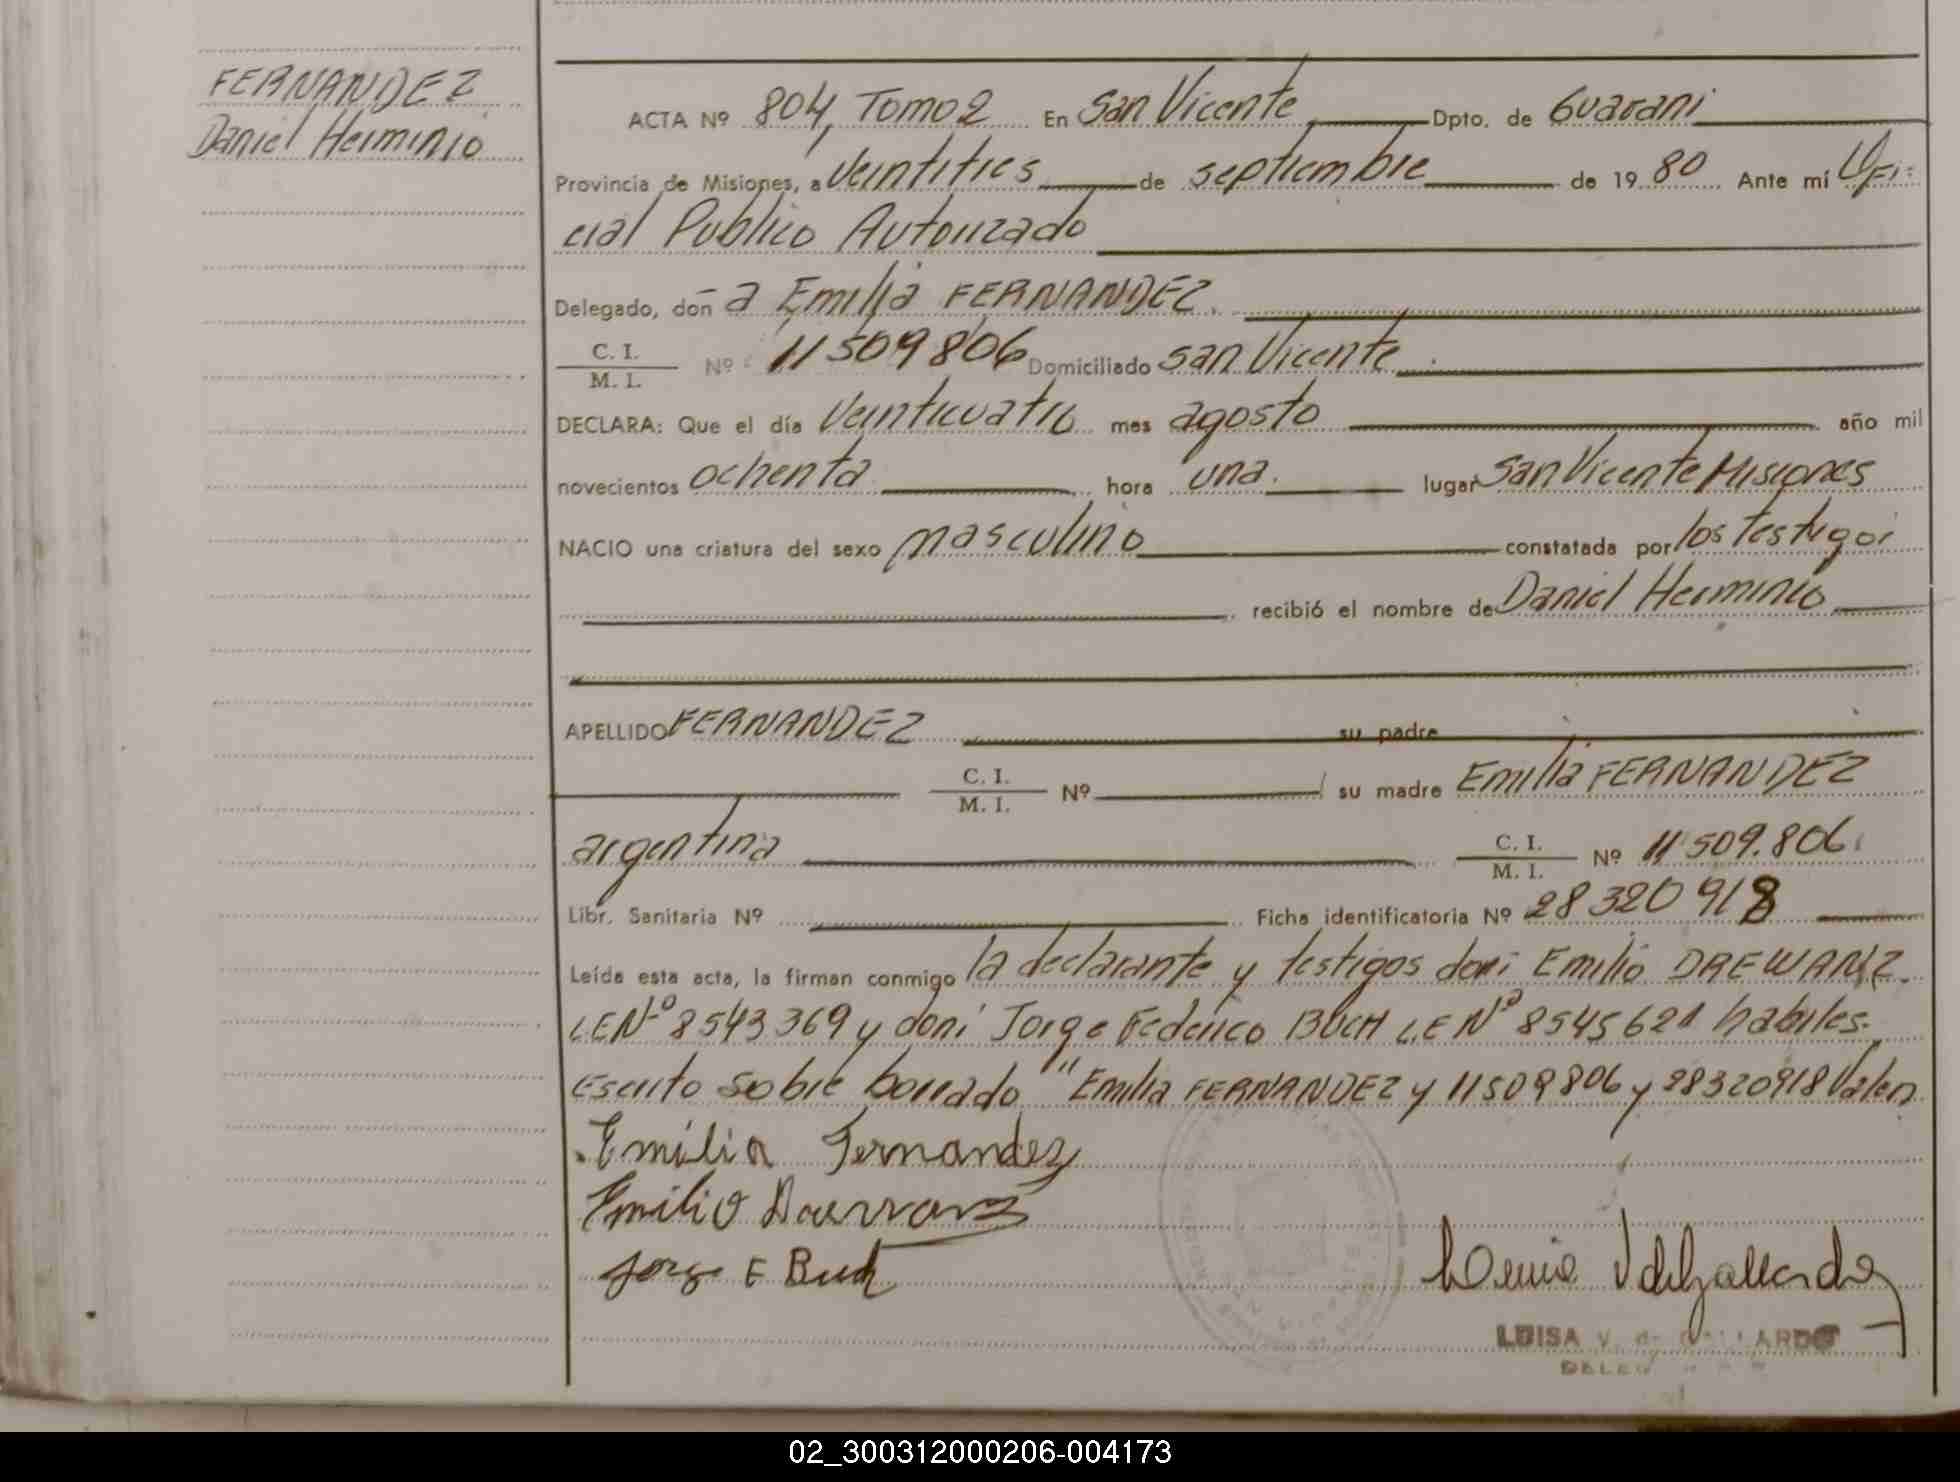 FERNANDEZ
Daniel Herminio
ACTA Nº 804, Tomo 2 En San Vicente Dpto. de Guarani
Provincia de Misiones, a Veintitres de septiembre de 19 80 Ante mí Ofi-
cial Publico Autorizado
Delegado, don a Emilia FERNANDEZ.
C. I.
M. I. Nº 11509806 Domiciliado San Vicente.
DECLARA: Que el día Veinticuatro mes agosto año mil
novecientos ochenta hora una. lugar San Vicente Misiones
NACIO una criatura del sexo masculino constatada por los testigos
recibió el nombre de Daniel Herminio
APELLIDO FERNANDEZ su padre
C. I.
M. I. Nº su madre Emilia FERNANDEZ
argentina C. I.
M. I. Nº 11 509.806
Libr. Sanitaria Nº Ficha identificatoria Nº 28320918
Leída esta acta, la firman conmigo la declarante y testigos don: Emilio DREWANZ
LE Nº 8543369 y don: Jorge Federico BUCH L.E Nº 8545621 habiles.
Escrito sobre borrado "Emilia FERNANDEZ y 11509806 y 28320918 Valen
Emilia Fernandez
Emilio
Jorge F Buch
LUISA V. de GALLARDO
02_300312000206-004173